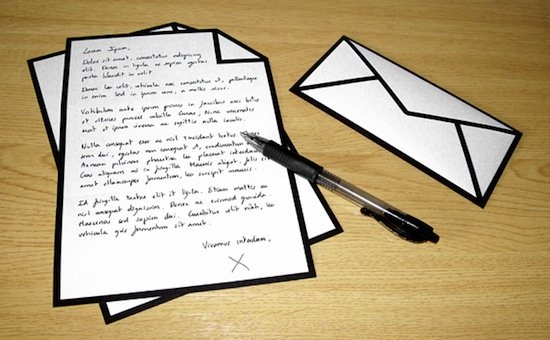 Lorem Ipsum,
Dolor sit amet, consectetur adipiscing
elit. Donec in ligula ac sapien egestas
porta blandit in velit.
Donec leo velit, vehicula nec consectetur ut, pellentesque
in enim. Sed in ipsum sem, a mattis
Vestibulum ante ipsum primis in faucibus orci luctus
et ultrices posuere cubilia Curae; Nunc venenatis
erat ut ipsum viverra ac sagittis nulla iaculis.
Nulla consequat eros ac nisl tincidunt tortor
sem dui, egestas non consequat ut, condimentum
Aenean pulvinar pharetra leo placerat interdum.
Cras aliquam mi in fringilla Mauris aliquet. felis
amet ullamcorper fermentum, leo suscipit mauris.
Id fringilla tortor elit et ligula. Etiam mattis
nisl consequat dignissim. Donec ac euismod gravida.
Maecenas sed sapien dui. Curabitur elit nibh, leo
vehicula quis fermentum sit amet.
Vivamus interdum,
X